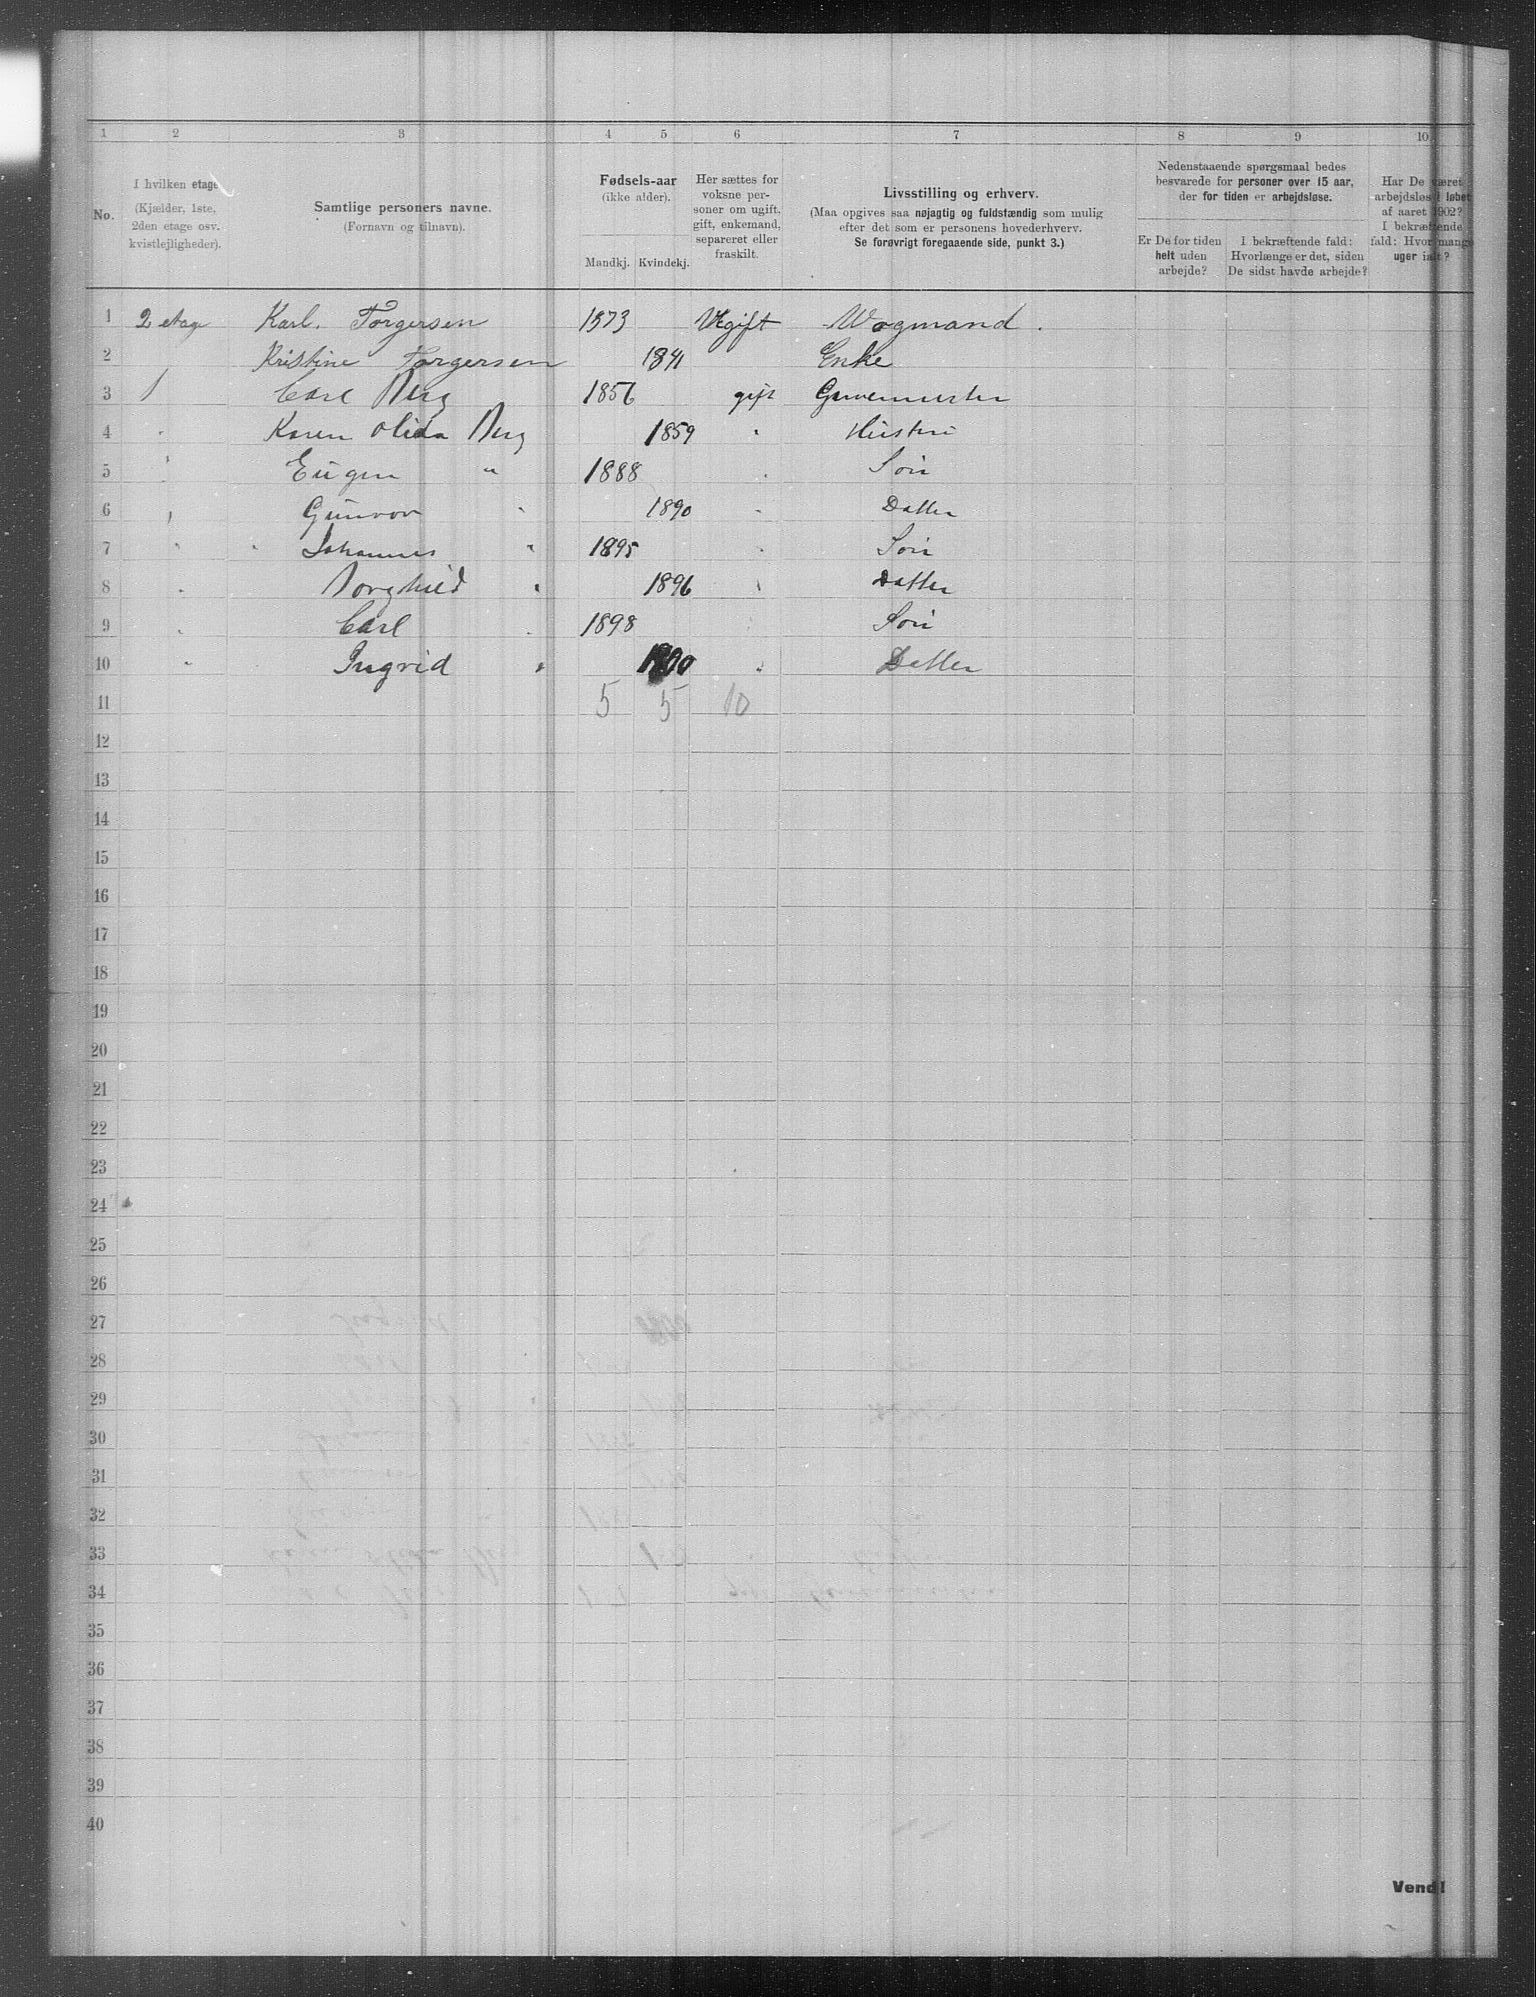 1 2 3 4 5 6 7 8 9 10
No.
I hvilken etage
(Kjælder, 1ste,
2den etage osv.
kvistlejligheder).
Samtlige personers navne.
(Fornavn og tilnavn).
Fødsels-aar
(ikke alder).
Mandkj. Kvindekj.
Her sættes for
voksne per-
soner om ugift,
gift, enkemand,
separeret eller
fraskilt.
Livsstilling og erhverv.
(Maa opgives saa nøjagtig og fuldstændig som mulig
efter det som er personens hovederhverv.
Se forøvrigt foregaaende side, punkt 3.)
Nedenstaaende spørgsmaal bedes
besvarede for personer over 15 aar,
der for tiden er arbejdsløse.
Er De for tiden
helt uden
arbejde?
I bekræftende fald:
Hvorlænge er det, siden
De sidst havde arbejde?
Har De været
arbejdsløs i løbet
af aaret 1902?
I bekræftende
fald: Hvor mange
uger ialt?
1 2 etage Karl. Torgersen 1873 Ugift Wognmand.
2 Kristine Torgersen 1841 Enke
3 Carl Berg 1856 gift
4 " Karen Olida Berg 1859 " Hustru
5 " Eugen " 1888 " Søn
6 " Gunvor " 1890 " Datter
7 " " Johannes " 1895 " Søn
8 " Borghild " 1896 " Datter
9 " Carl " 1898 " Søn
10 " Ingrid " 1900 " Datter
11 5 5 10
12
13
14
15
16
17
18
19
20
21
22
23
24
25
26
27
28
29
30
31
32
33
34
35
36
37
38
39
40
Vend!